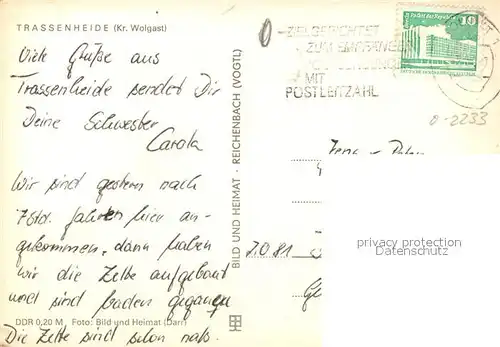 TRASSENHEIDE (Kr. Wolgast)
Viele Grüße aus
Trassenheide sendet Dir
Deine Schwester
Carola
Wir sind gestern nach
7 Std. fahren hier an-
gekommen, dann haben
wir die Zelte aufgebaut
und sind baden gegangen
DDR 0,20 M, Foto: Bild und Heimat (Darr)
Die Zelte sind schon naß.
BILD UND HEIMAT · REICHENBACH (VOGTL)
ZIELGERICHTET
ZUM EMPFÄNGER
MIT
POSTLEITZAHL
10
0-2233
7081
privacy protection
Datenschutz